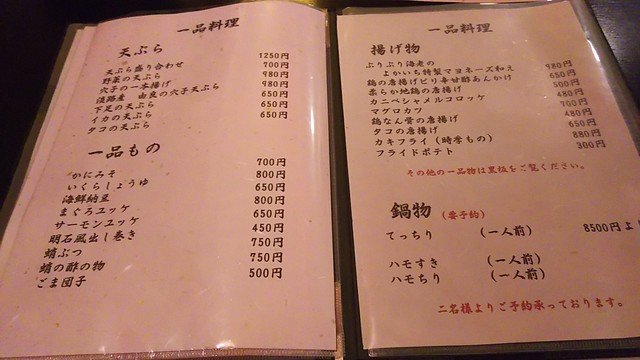 一品料理
天ぷら
天ぷら盛り合わせ 1250円
野菜の天ぷら 700円
穴子の一本揚げ 980円
淡路産 由良の穴子天ぷら 980円
下足の天ぷら 650円
イカの天ぷら 650円
タコの天ぷら 650円
一品もの
かにみそ 700円
いくらしょうゆ 800円
海鮮納豆 650円
まぐろユッケ 800円
サーモンユッケ 650円
明石風出し巻き 450円
蛸ぶつ 750円
蛸の酢の物 750円
ごま団子 500円
一品料理
揚げ物
ぷりぷり海老の
よかいち特製マヨネーズ和え 980円
鶏の唐揚げピリ辛甘酢あんかけ 650円
柔らか地鶏の唐揚げ 500円
カニベシャメルコロッケ 480円
マグロカツ 700円
鶏なん骨の唐揚げ 480円
タコの唐揚げ 650円
カキフライ(時季もの) 880円
フライドポテト 300円
その他の一品物は黒板をご覧ください。
鍋物 (要予約)
てっちり (一人前) 8500円より
ハモすき (一人前)
ハモちり (一人前)
二名様よりご予約承っております。